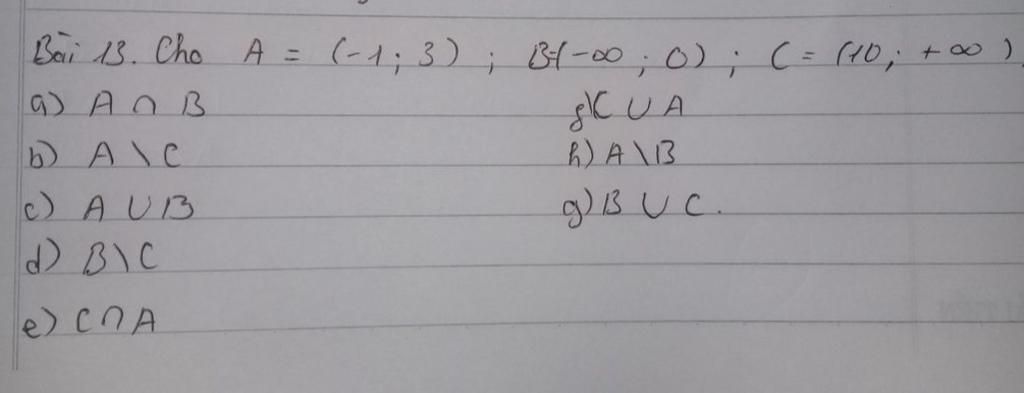 Bài 13. Cho A = (-1; 3) ; B=(-∞ ; 0) ; C = (10; +∞)
a) A ∩ B
b) A \ C
c) A ∪ B
d) B \ C
e) C ∩ A
g) C ∪ A
h) A \ B
g) B ∪ C.